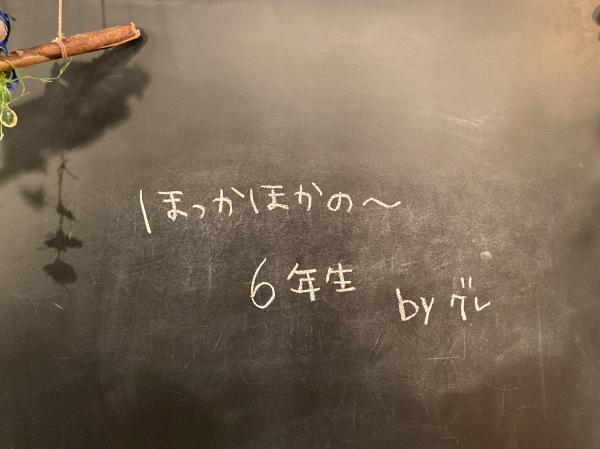 ほっかほかの～
6年生
by グレ